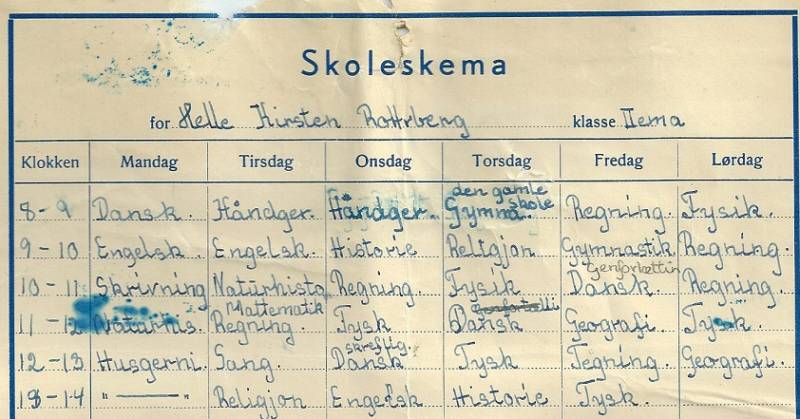 Skoleskema
for Helle Kirsten klasse IIema
Klokken Mandag Tirsdag Onsdag Torsdag Fredag Lørdag
den gamle
8-9 Dansk. Håndger. Håndger. Gymna. skole Regning. Fysik.
9-10 Engelsk. Engelsk. Historie Religjon Gymnastik Regning.
Genfortællin
10-11 Skrivning Naturhisto Regning. Fysik Dansk Regning.
Mattematik
11-12 Naturhis. Regning. Tysk Dansk Geografi. Tysk.
skreftlig.
12-13 Husgerni. Sang. Dansk Tysk Tegning. Geografi.
13-14 "——" Religjon Engelsk Historie Tysk.